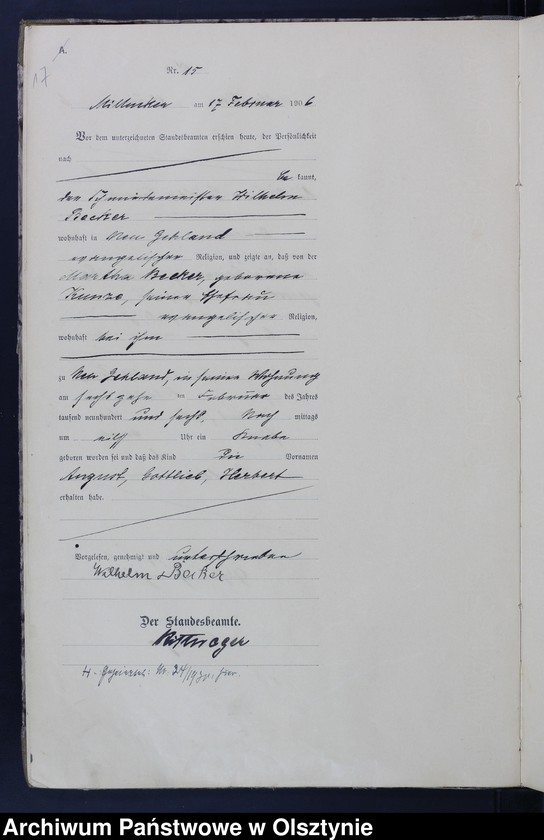 A.
17
Nr. 15
am 17 Februar 1906
Vor dem unterzeichneten Standesbeamten erschien heute, der Persönlichkeit
nach
be kannt,
der Schneidermeister Wilhelm
Becker
wohnhaft in Neu Jekland
evangelischer Religion, und zeigte an, daß von der
Martha Becker, geborene
Kunze, seiner Ehefrau
evangelischer Religion,
wohnhaft bei ihm
zu Neu Jekland, in seiner Wohnung
am sechszehn ten Februar des Jahres
tausend neunhundert und sechs, Nach mittags
um elf Uhr ein Knabe
geboren worden sei und daß das Kind die Vornamen
August, Gottlieb, Herbert
erhalten habe.
Vorgelesen, genehmigt und unterschrieben
Wilhelm Becker
Der Standesbeamte.
Archiwum Państwowe w Olsztynie